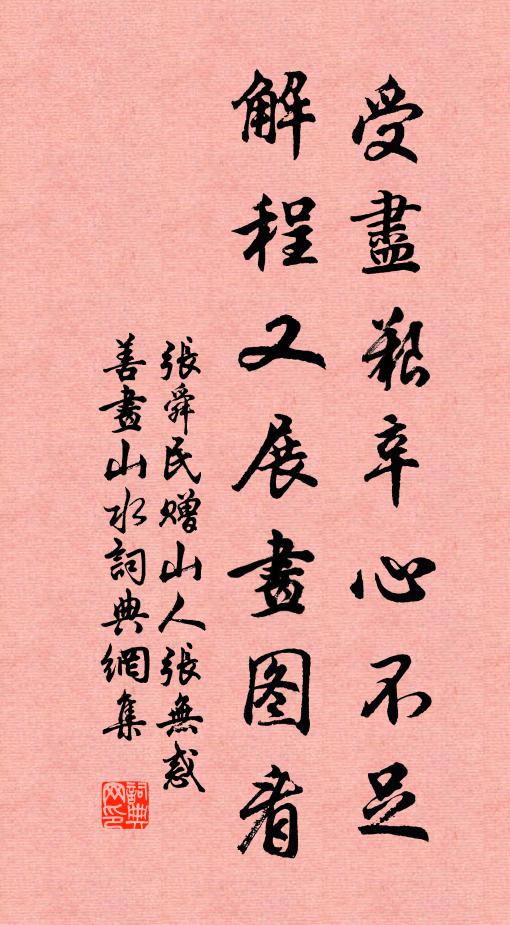 受盡艱辛心不足
解程又展畫图看
張舜民贈山人張無惑
善畫山水詞典網集
詞典网印